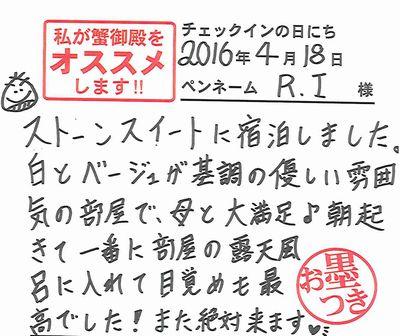 私が蟹御殿を
オススメ
します!!
チェックインの日にち
2016年4月18日
ペンネーム R.I 様
ストーンスイートに宿泊しました。
白とベージュが基調の優しい雰囲
気の部屋で、母と大満足♪朝起
きて一番に部屋の露天風
呂に入れて目覚めも最
高でした！また絶対来ます。
お墨つき